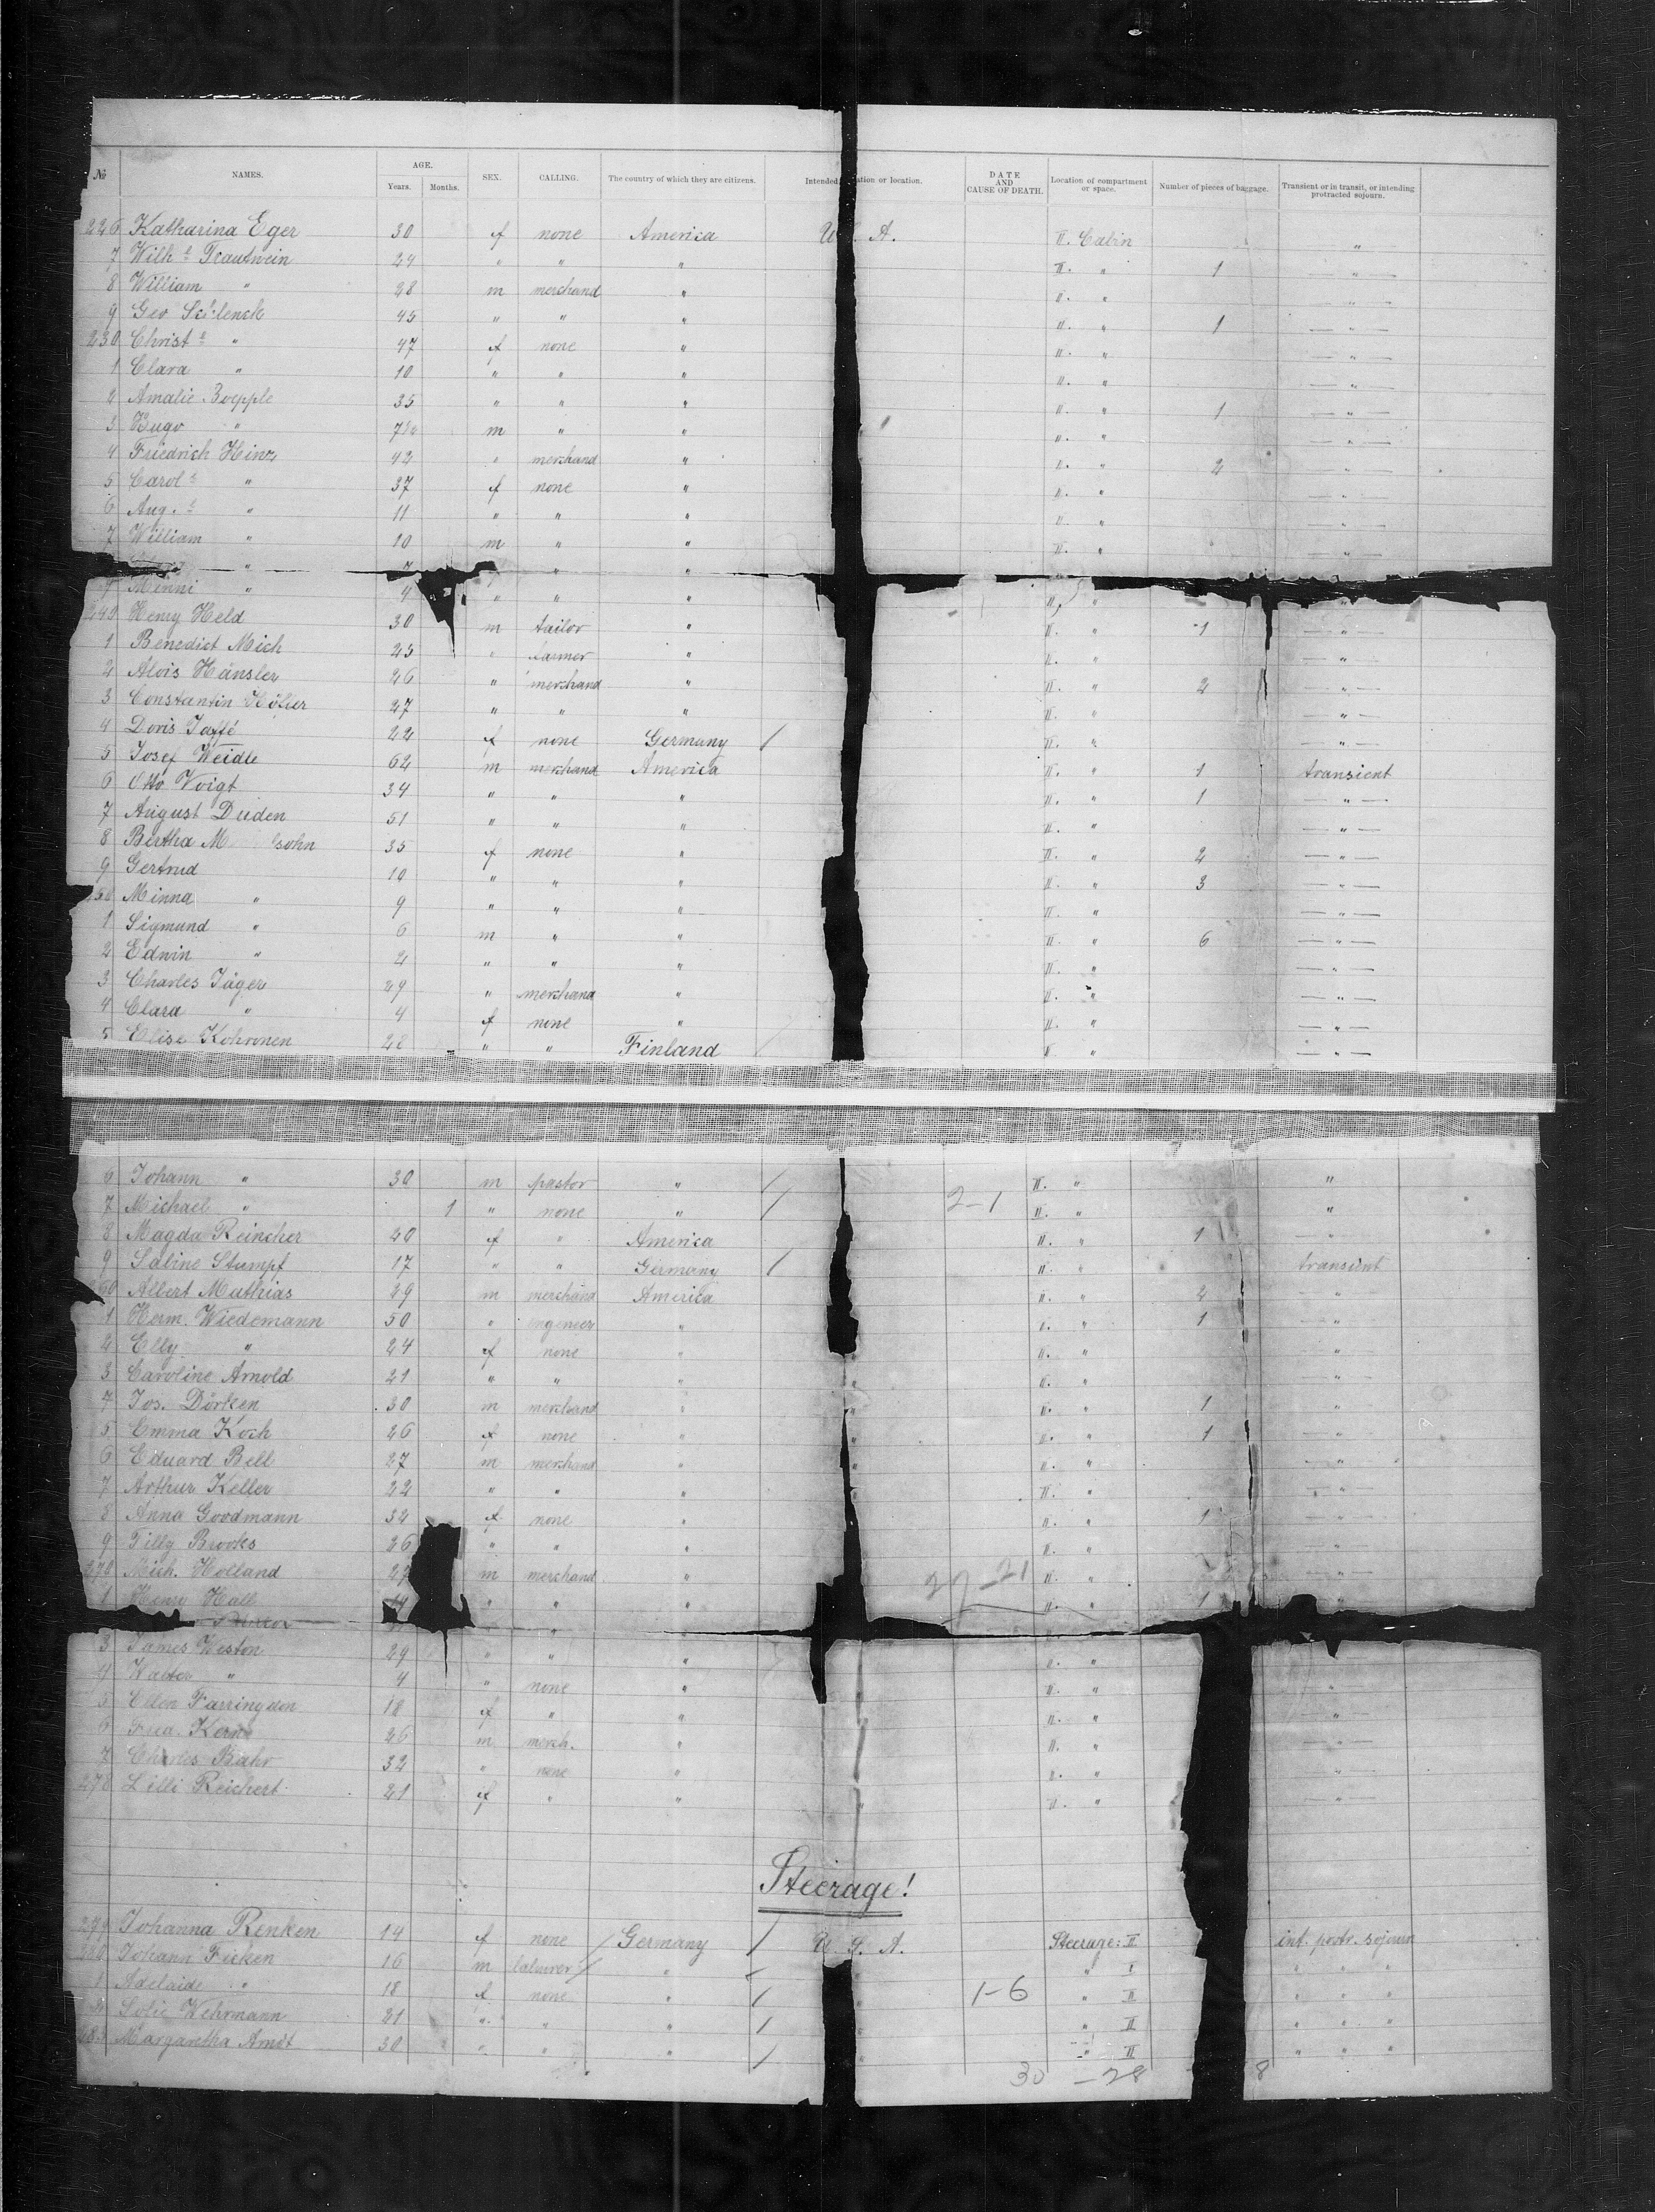 № NAMES. AGE. Years. Months. SEX. CALLING. The country of which they are citizens. Intended ation or location. DATE AND CAUSE OF DEATH. Location of compartment or space. Number of pieces of baggage. Transient or in transit, or intending protracted sojourn.
226 Katharina Eger 30 f none America U. A. II. Cabin "
7 Wilhe Trautwein 24 " " " II. " 1 — " —
8 William " 28 m merchand " II. " — " —
9 Geo 45 " " " II. " 1 — " —
230 Christe " 47 f none " II. " — " —
1 Clara " 10 " " " II. " — " —
2 Amalie Boepple 35 " " " II. " 1 — " —
3 Hugo " m " " II. " — " —
4 Friedrich Hinz 42 " merchand " II. " 2 — " —
5 Carole " 37 f none " II. " — " —
6 Aug.e " 11 " " " II. " — " —
7 William " 10 m " " II. " — " —
" 7 " "
9 Minni " 4 " " " II. " "
240 Henry Held 30 m tailor " II. " 1 — " —
1 Benedict Mich 25 " farmer " II. " — " —
2 Alois Hänsler 26 " merchand " II. " 2 — " —
3 Constantin 27 " " " II. " — " —
4 Doris Jaffé 22 f none Germany / II. " — " —
5 Josef Weidle 62 m merchand America II. " 1 transient
6 Otto Voigt 34 " " " II. " 1 — " —
7 August Duden 51 " " " II. " — " —
8 Bertha M sohn 35 f none " II. " 2 — " —
9 Gertrud 10 " " " II. " 3 — " —
250 Minna " 9 " " " II. " — " —
1 Sigmund " 6 m " " II. " 6 — " —
2 Edwin " 2 " " " II. " — " —
3 Charles Jäger 29 " merchand " II. " — " —
4 Clara " 4 f none " II. " — " —
5 Elise Kohronen 28 " " Finland / II " — " —
6 Johann " 30 m pastor " / II. " "
7 Michael " 1 " none " / 2-1 II. " "
8 Magda Reincher 20 f " America II. " 1 — "
9 Sabine Stumpf 17 " " Germany / II. " transient
60 Albert Mathias 29 m merchand America II. " 2 — " —
1 Herm. Wiedemann 50 " engeneer " II. " 1 — " —
2 Elly " 24 f none " II. " — " —
3 Caroline Arnold 21 " " " " II. " — " —
4 Jos. Dörken 30 m merchand " " II. " 1 — " —
5 Emma Koch 26 f none " " II. " 1 — " —
6 Eduard Bell 27 m merchand " " II. " — " —
7 Arthur Keller 22 " " " II. " — " —
8 Anna Goodmann 32 f none " II. " 1 — " —
9 Tilly Brooks 26 " " " II. " — " —
270 Mich. Holland 27 m merchand " 27-21 II. " — " —
1 Henry Hall " " " II. " 1 "
"
3 James Weston 29 " " " II. "
4 Walter " 4 " none " II. " "
5 Ellen Farringdon 18 f " " II. " — " —
6 Fred. Kern 26 m merch. " II. "
7 Charles Bahr 32 " none " II. " — " —
278 Lilli Reichert 21 f " " " II. " — " —
Steerage!
279 Johanna Renken 14 f none / Germany / U. S. A. Steerage: II int. protr. sojourn
280 Johann Ficken 16 m labourer / " / " I " " "
1 Adelaide " 18 f none " / " 1-6 " II " " "
2 Sofie Wehrmann 21 " " " / " " II " " "
283 Margaretha Arndt 30 " " " / " " II " " "
30 - 28 8